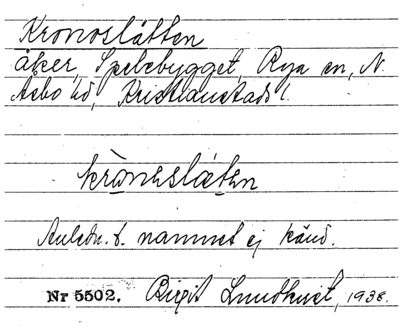 Kronoslätten
åker, Spelebygget, Rya sn, N.
Åsbo hd, Kristianstads l.
krònəslátən
Anledn. t. namnet ej känd.
Nr 5502. Birgit Lundkvist, 1938.